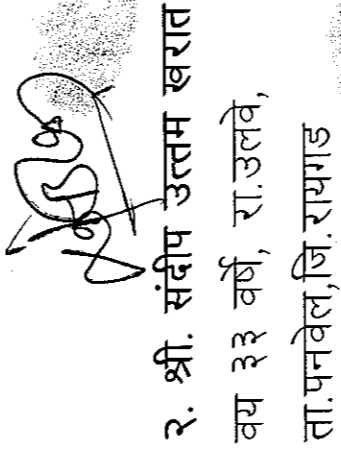 २. श्री. संदीप उत्तम खरात
वय ३३ वर्षे, रा.उलवे,
ता.पनवेल,जि.रायगड